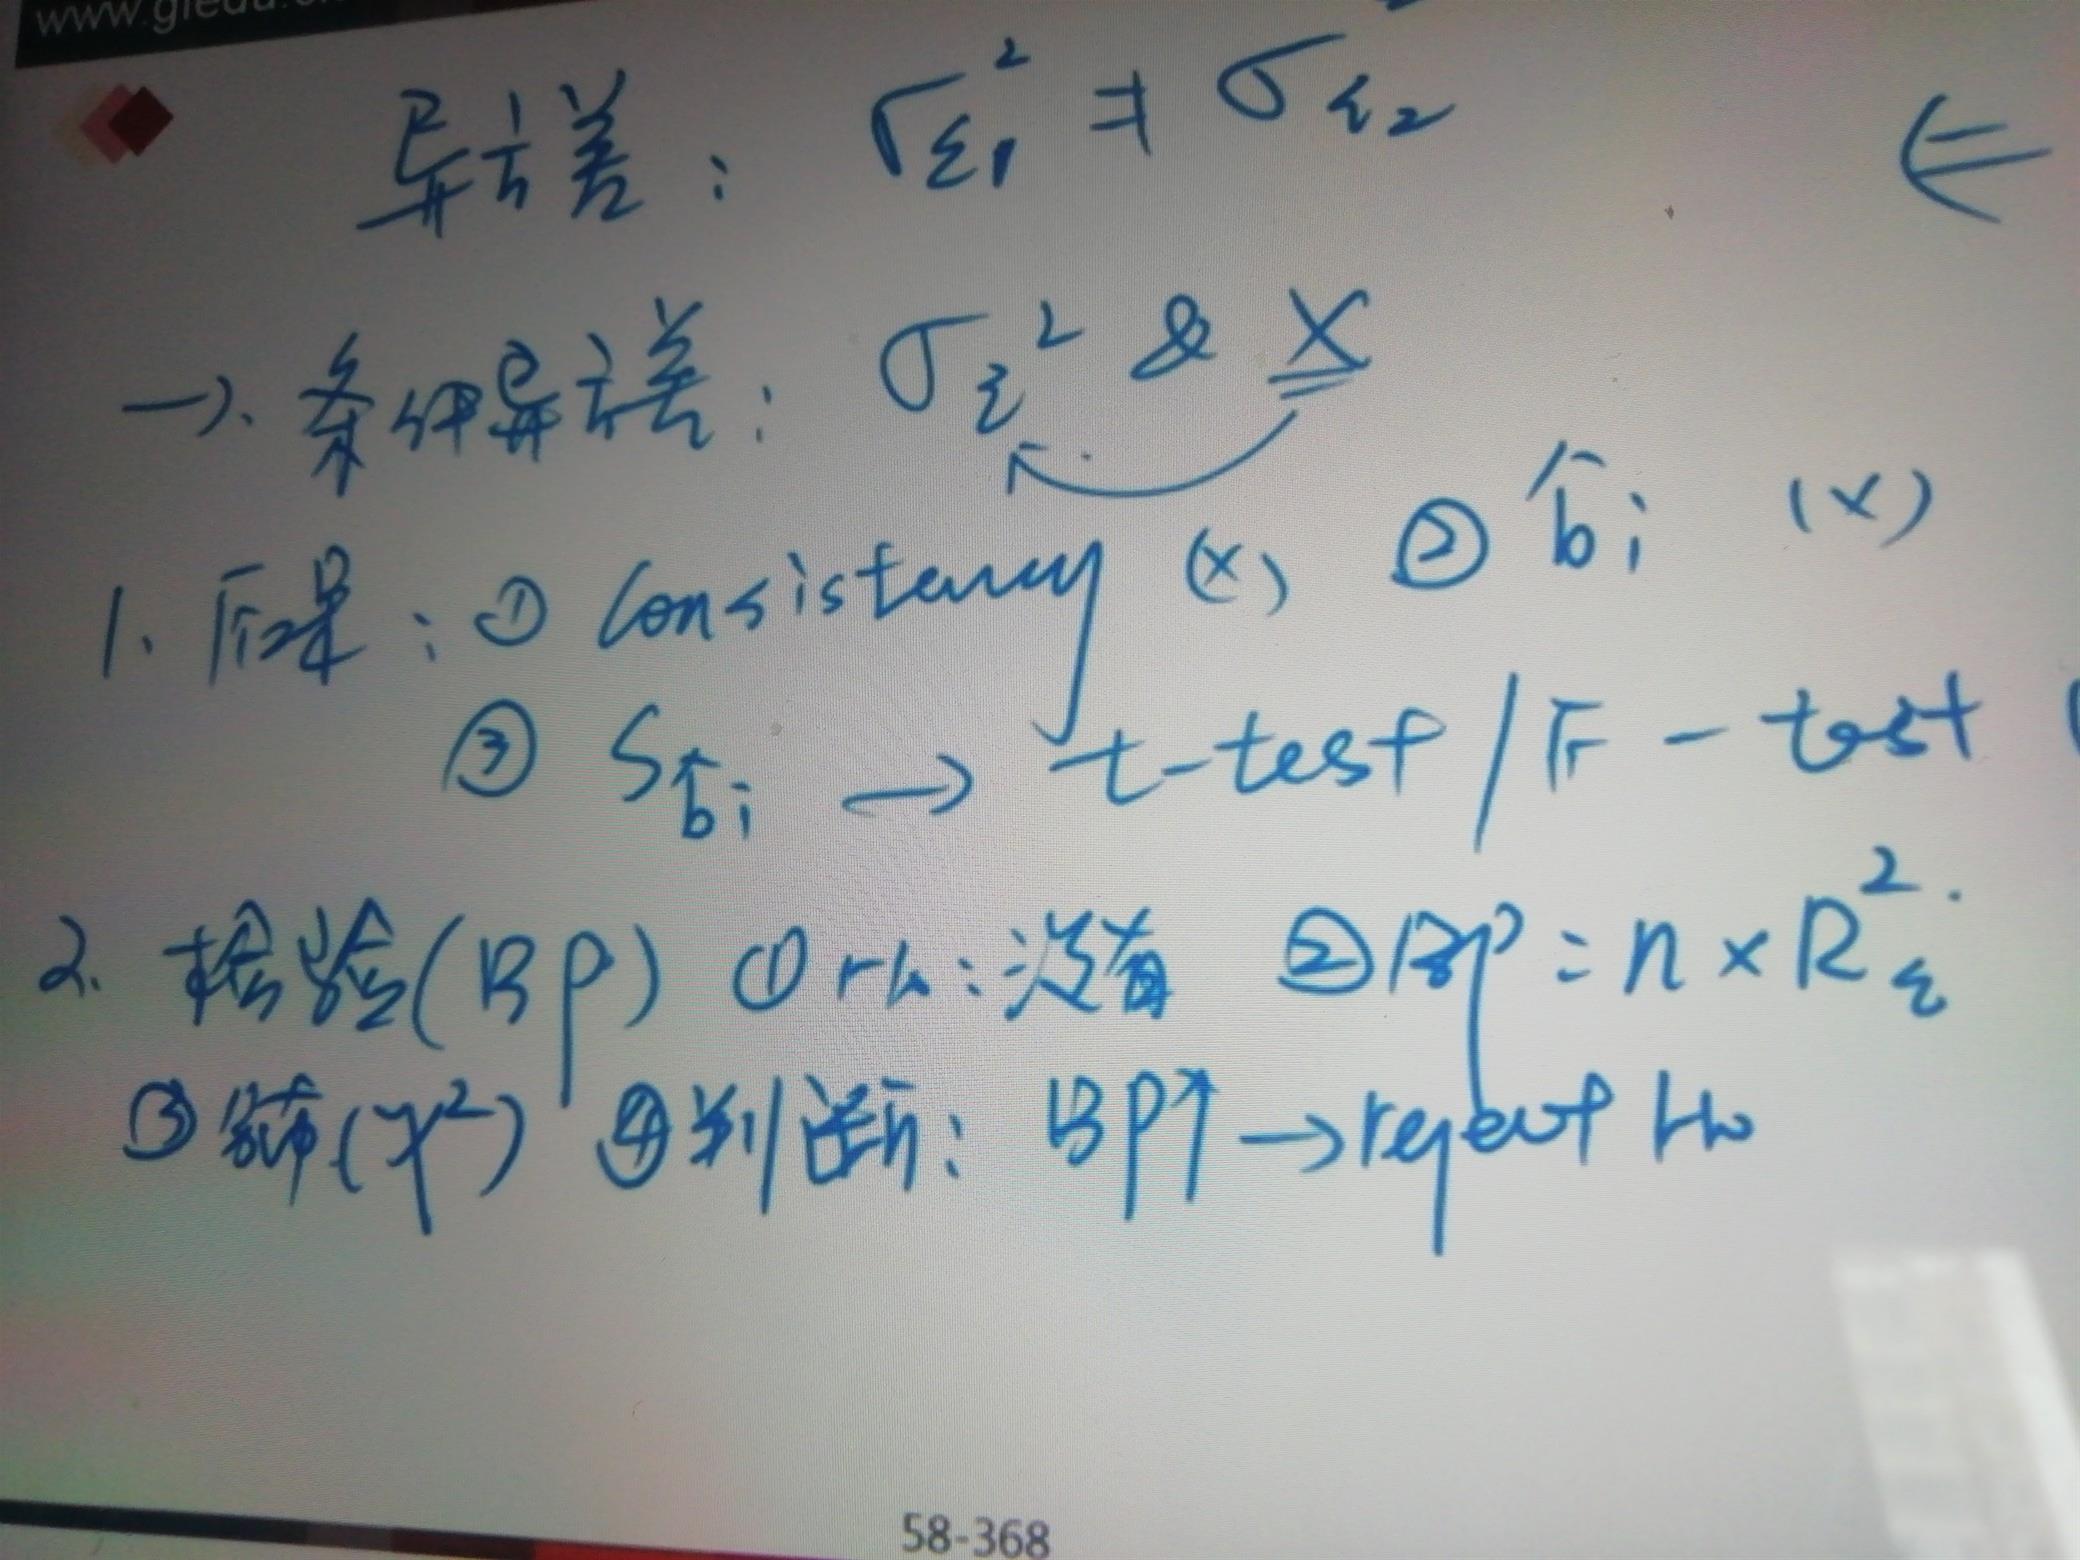 异方差: σε1² ≠ σε2²
一、条件异方差: σε² & X
1. 后果: ① Consistency (×) ② b̂i (×)
③ Sb̂i → t-test / F-test
2. 检验(BP) ① H0: 没有 ② BP = n × R²ε
③ (χ²) ④ 判断: BP↑ → reject H0
58-368